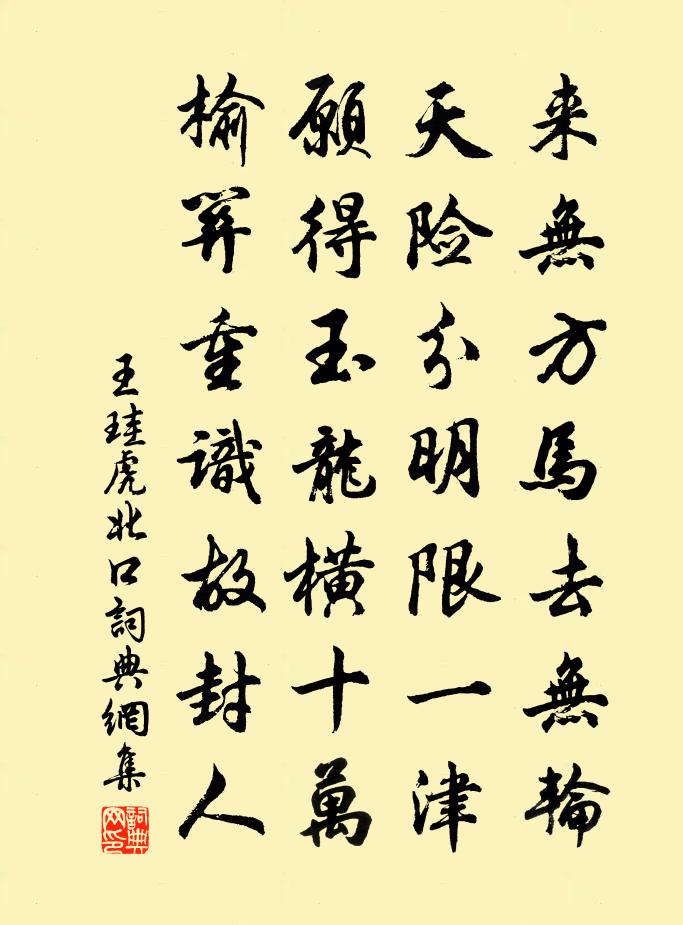 来無方馬去無輪
天险分明限一津
願得玉龍橫十萬
榆關重識故封人
王珪虎北口詞典網集
詞典
网印